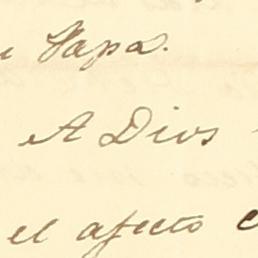 Papa.
A Dios
el afecto